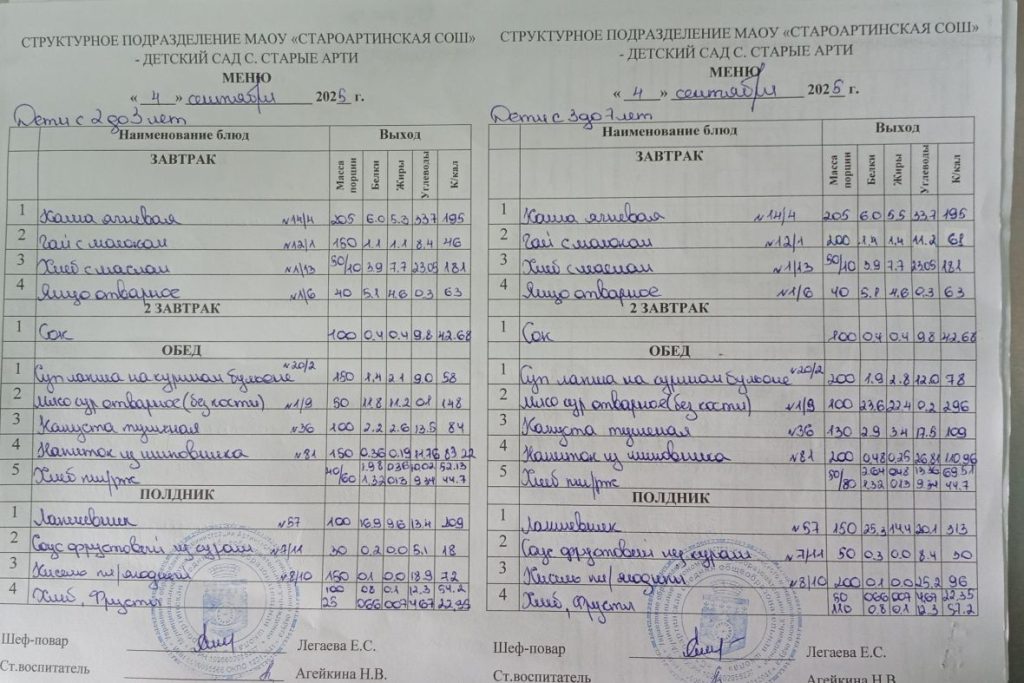 СТРУКТУРНОЕ ПОДРАЗДЕЛЕНИЕ МАОУ «СТАРОАРТИНСКАЯ СОШ»
- ДЕТСКИЙ САД С. СТАРЫЕ АРТИ
МЕНЮ
« 4 » сентября 2025 г.
Дети с 2 до 3 лет
Наименование блюд Выход
ЗАВТРАК Масса порции Белки Жиры Углеводы К/кал
1 Каша ячневая №14/4 205 6.0 5.3 33.7 195
2 Чай с молоком №12/1 150 1.1 1.1 8.4 46
3 Хлеб с маслом №1/13 50/10 3.9 7.7 23.05 181
4 Яйцо отварное №1/6 40 5.1 4.6 0.3 63
2 ЗАВТРАК
1 Сок 100 0.4 0.4 9.8 42.68
ОБЕД
1 Суп лапша на курином бульоне №20/2 150 1.4 2.1 9.0 58
2 Мясо кур отварное (без кости) №1/9 50 11.8 11.2 0.1 148
3 Капуста тушеная №36 100 2.2 2.6 13.5 84
4 Напиток из шиповника №81 150 0.36 0.19 83.22
5 Хлеб пш/рж 40/60 1.98 0.36 10.02 52.13
1.32 0.13 9.34 44.7
ПОЛДНИК
1 Лапшевник №57 100 16.9 9.6 13.4 209
2 Соус фруктовый из кураги №7/11 30 0.2 0.0 5.1 18
3 Кисель пл/ягодный №8/10 150 0.1 0.0 18.9 72
4 Хлеб, Фрукты 100 0.8 0.1 12.3 57.2
25 0.66 0.07 4.67 22.35
Шеф-повар Легаева Е.С.
Ст.воспитатель Агейкина Н.В.
СТРУКТУРНОЕ ПОДРАЗДЕЛЕНИЕ МАОУ «СТАРОАРТИНСКАЯ СОШ»
- ДЕТСКИЙ САД С. СТАРЫЕ АРТИ
МЕНЮ
« 4 » сентября 2025 г.
Дети с 3 до 7 лет
Наименование блюд Выход
ЗАВТРАК Масса порции Белки Жиры Углеводы К/кал
1 Каша ячневая №14/4 205 6.0 5.5 33.7 195
2 Чай с молоком №12/1 200 1.4 1.4 11.2 61
3 Хлеб с маслом №1/13 50/10 3.9 7.7 23.05 181
4 Яйцо отварное №1/6 40 5.1 4.6 0.3 63
2 ЗАВТРАК
1 Сок 100 0.4 0.4 9.8 42.68
ОБЕД
1 Суп лапша на курином бульоне №20/2 200 1.9 2.8 12.0 78
2 Мясо кур отварное (без кости) №1/9 100 23.6 22.4 0.2 296
3 Капуста тушеная №36 130 2.9 3.4 17.5 109
4 Напиток из шиповника №81 200 0.48 0.25 26.81 110.96
5 Хлеб пш/рж 50/80 2.64 0.48 13.36 69.51
1.32 0.13 9.34 44.7
ПОЛДНИК
1 Лапшевник №57 150 25.3 14.4 20.1 313
2 Соус фруктовый из кураги №7/11 50 0.3 0.0 8.4 30
3 Кисель пл/ягодный №8/10 200 0.1 0.0 25.2 96
4 Хлеб, Фрукты 50 0.66 0.07 4.67 22.35
110 0.8 0.1 12.3 57.2
Шеф-повар Легаева Е.С.
Ст.воспитатель Агейкина Н.В.